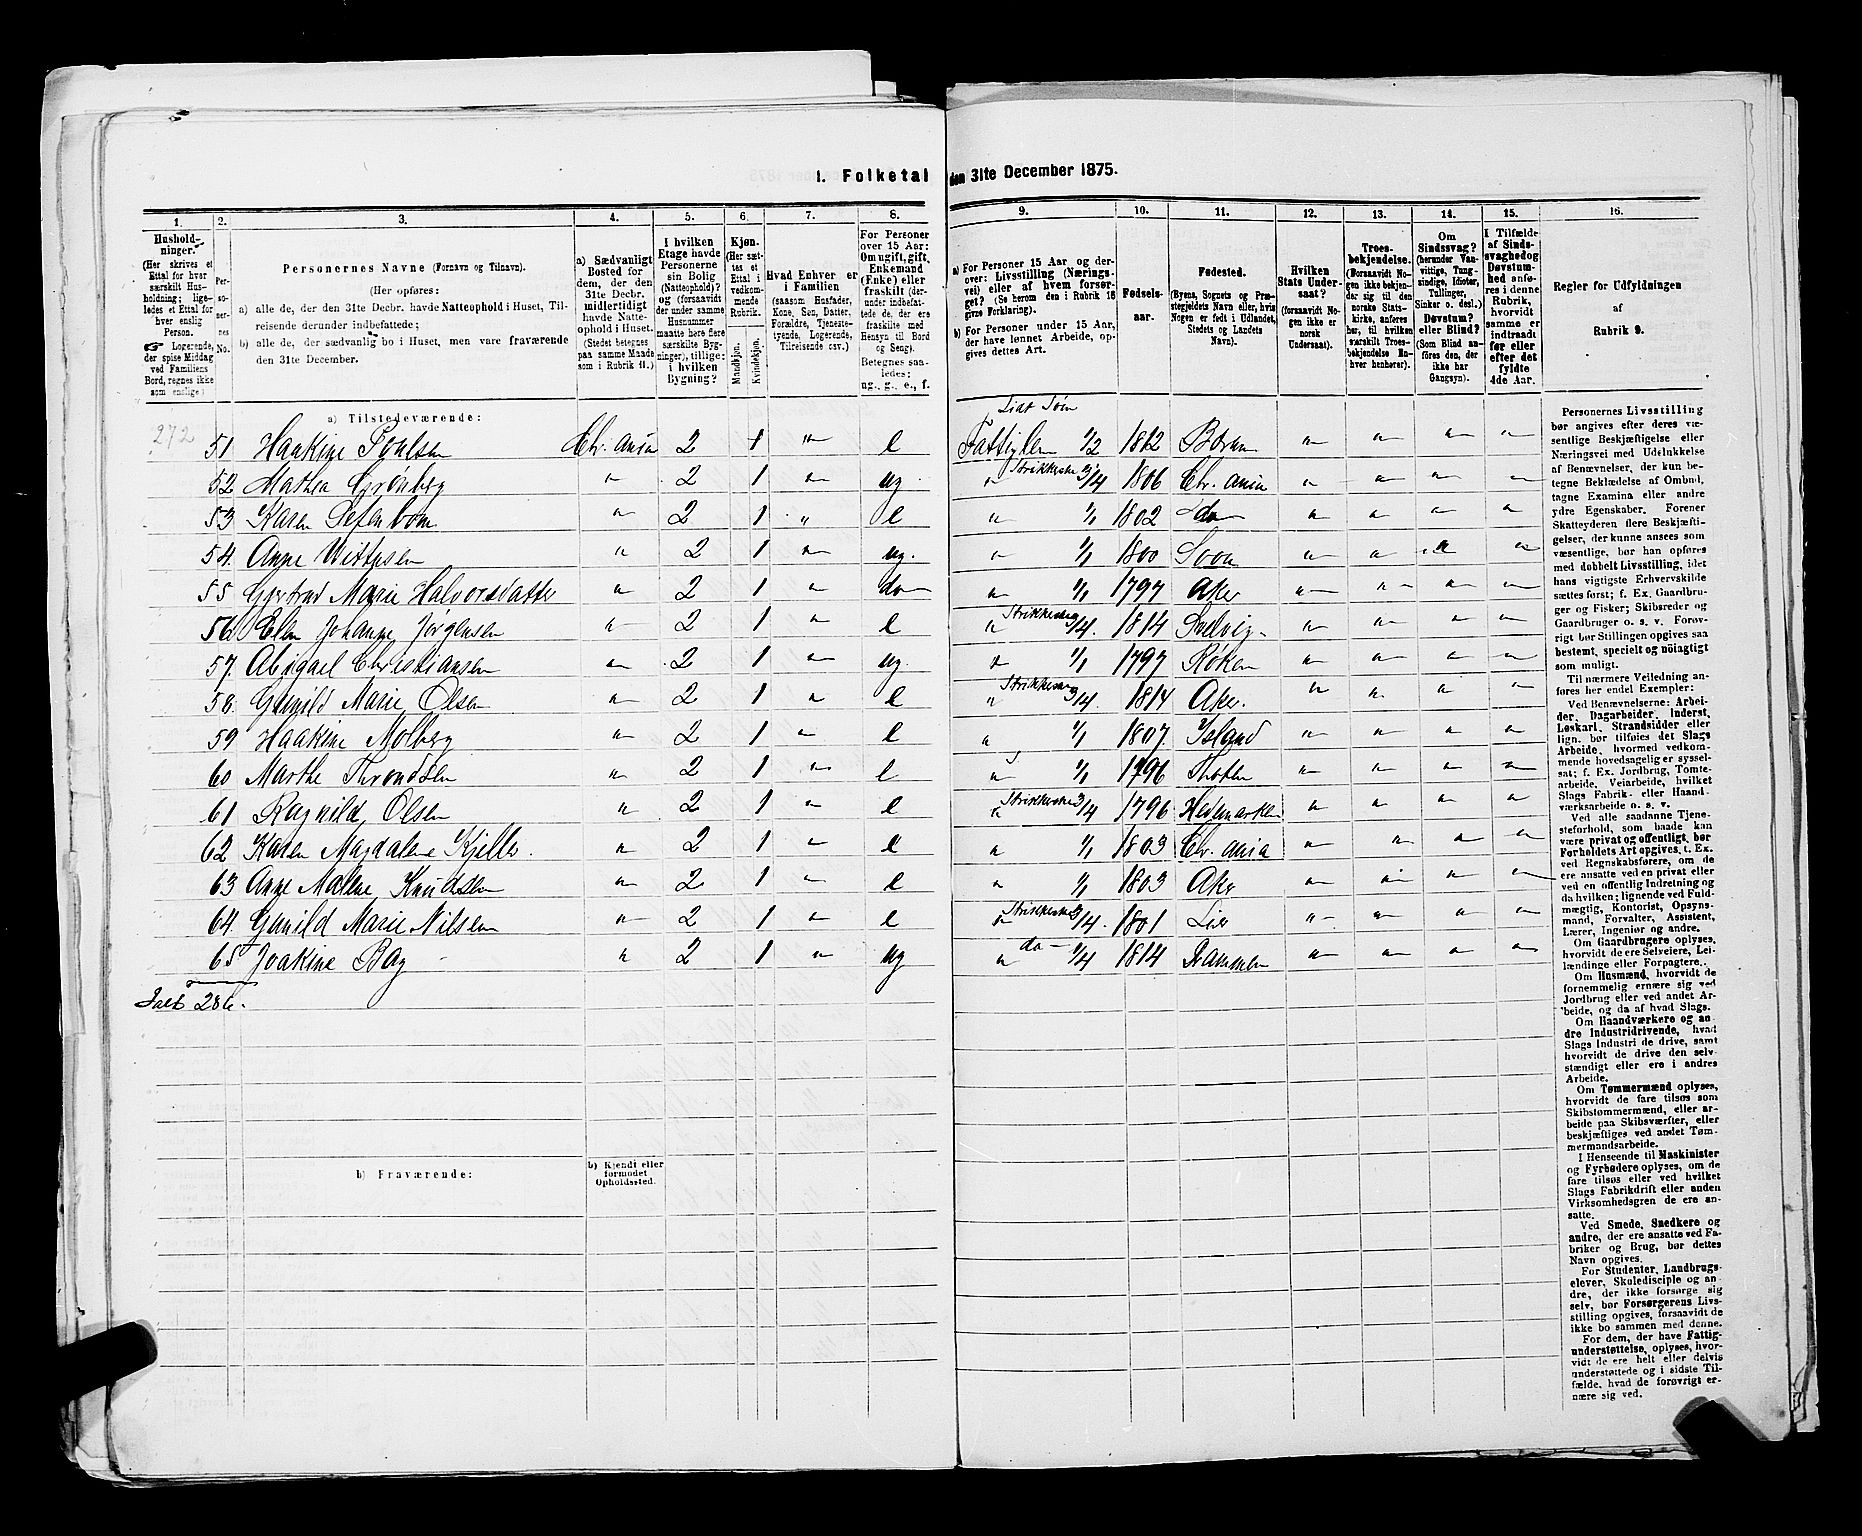 1. Folketal den 31te December 1875.
1. 2. 3. 4. 5. 6. 7. 8. 9. 10. 11. 12. 13. 14. 15. 16.
Husholdninger.
(Her skrives et
Ettal for hver
særskilt Husholdning;
ligeledes
et Ettal for
hver enslig
Person.
Logerende,
der spise Middag
ved Familiens
Bord, regnes ikke
som enslige)
Personernes No.
Personernes Navne (Fornavn og Tilnavn).
(Her opføres:
a) alle de, der den 31te Decbr. havde Natteophold i Huset, Tilreisende
derunder indbefattede;
b) alle de, der sædvanlig bo i Huset, men vare fraværende
den 31te December.
a) Sædvanligt
Bosted for
dem, der den
31te Decbr.
midlertidigt
havde Natteophold
i Huset.
(Stedet betegnes
paa samme Maade
som i Rubrik 11.)
I hvilken
Etage havde
Personerne
sin Bolig
(Natteophold)?
og (forsaavidt
der under samme
Husnummer
maatte høre flere
særskilte Bygninger),
tillige:
i hvilken
Bygning?
Kjøn.
(Her sættes
et
Ettal i
vedkommende
Rubrik.
Mandkjøn.
Kvindekjøn.
Hvad Enhver er
i Familien
(saasom Husfader,
Kone, Søn, Datter,
Forældre, Tjenestetyende,
Logerende,
Tilreisende osv.)
For Personer
over 15 Aar:
Om ugift, gift,
Enkemand
(Enke) eller
fraskilt (derunder
indbefattede
de, der ere
fraskilte med
Hensyn til Bord
og Seng).
Betegnes saaledes:
ug., g., e., f.
a) For Personer 15 Aar og derover:
Livsstilling (Næringsvei)
eller af hvem forsørget?
(Se herom den i Rubrik 16
givne Forklaring).
b) For Personer under 15 Aar,
der have lønnet Arbeide, opgives
dettes Art.
Fødselsaar.
Fødested.
(Byens, Sognets og Præstegjeldets
Navn eller, hvis
Nogen er født i Udlandet,
Stedets og Landets
Navn).
Hvilken
Stats Undersaat?
(forsaavidt Nogen
ikke er
norsk
Undersaat).
Troesbekjendelse.
(Forsaavidt Nogen
ikke bekjender
sig til den
norske Statskirke,
anføres
her, til hvilken
særskilt Troesbekjendelse
Enhver
henhører).
Om
Sindssvag?
(herunder Vanvittige,
Tungsindige,
Idioter,
Tullinger,
Sinker o. desl.)
Døvstum?
eller Blind?
(Som Blind anføres
den, der
ikke har
Gangsyn).
I Tilfælde
af Sindssvaghed
og
Døvstumhed
anføres
i denne
Rubrik,
hvorvidt
samme er
indtraadt
før eller
efter det
fyldte
4de Aar.
Regler for Udfyldningen
af
Rubrik 9.
a) Tilstedeværende:
272 51 Haakine Poulsen Chr. ania 2 1 " e Lidt Søm Fattiglem 1/2 1812 Bærum " " " "
52 Mathea Grønberg " 2 1 " ug. " Strikkeske 3/4 1806 Chr. ania " " " "
53 Karen Sefenbom " 2 1 " e " 1/1 1802 do " " " "
54. Anne Wittusen " 2 1 " ug. " 1/1 1800 Soon " " " "
55 Gjertrud Marie Halvorsdatter " 2 1 " do " 1/1 1797 Aker " " " "
56. Elen Johanne Jørgensen " 2 1 " e " Strikkeske 3/4. 1814 Svelvig " " " "
57. Abigael Christiansen " 2 1 " ug. " 1/1 1797 Røken " " " "
58. Gunild Marie Olsen " 2 1 " e " Strikkeske 3/4. 1814 Aker. " " " "
59 Haakine Molberg " 2 1 " e " 1/1 1807. Island " " " "
60 Marthe Throndsen " 2 1 " e " 1/1 1796 Thoten " " " "
61 Ragnild Olsen " 2 1 " e " Strikkeske 3/4 1796 Hedemarken " " " "
62 Karen Magdalene Kjelles. " 2 1 " e " 1/1 1803 Chr. ania " " " "
63 Anne Malene Knudsen " 2 1 " e " 1/1 1803 Aker " " " "
64. Gunild Marie Nilsen " 2 1 " e " Strikkeske 3/4. 1801 Lier " " " "
65 Joakine Bay " 2 1 " ug " do 1/4 1814 Drammen " " " "
Ialt 286.
b) Fraværende:
b) Kjendt eller
formodet
Opholdssted.
Personernes Livsstilling
bør angives efter deres væsentlige
Beskjæftigelse eller
Næringsvei med Udelukkelse
af Benævnelser, der kun betegne
Beklædelse af Ombud,
tagne Examina eller andre
ydre Egenskaber. Forener
Skatteyderen flere Beskjæftigelser,
der kunne ansees som
væsentlige, bør han opføres
med dobbelt Livsstilling, idet
hans vigtigste Erhvervskilde
sættes først; f. Ex. Gaardbruger
og Fisker; Skibsreder og
Gaardbruger o. s. v. Forøvrigt
bør Stillingen opgives saa
bestemt, specielt og nøiagtigt
som muligt.
Til nærmere Veiledning anføres
her endel Exempler:
Ved Benævnelserne: Arbeider,
Dagarbeider, Inderst,
Løskarl, Strandsidder eller
lign. bør tilføies det Slags
Arbeide, hvormed vedkommende
hovedsagelig er sysselsat;
f. Ex. Jordbrug, Tomtearbeide,
Veiarbeide, hvilket
Slags Fabrik- eller Haandværksarbeide
o. s. v.
Ved alle saadanne Tjenesteforhold,
som baade kan
være privat og offentligt, bør
Forholdets Art opgives, t. Ex.
ved Regnskabsførere, om de
ere ansatte ved en privat eller
ved en offentlig Indretning og
da hvilken; lignende ved Fuldmægtig,
Kontorist, Opsynsmand,
Forvalter, Assistent,
Lærer, Ingeniør og andre.
Om Gaardbrugere oplyses,
hvorvidt de ere Selveiere, Leilændinge
eller Forpagtere.
Om Husmænd, hvorvidt de
fornemmelig ernære sig ved
Jordbrug eller ved andet Arbeide,
og da af hvad Slags.
Om Haandværkere og andre
Industridrivende, hvad
Slags Industri de drive, samt
hvorvidt de drive den selvstændigt
eller ere i andres
Arbeide.
Om Tømmermænd oplyses,
hvorvidt de fare tilsøs som
Skibstømmermænd, eller arbeide
paa Skibsværfter, eller
beskjæftiges ved andet Tømmermandsarbeide.
I Henseende til Maskinister
og Fyrbødere oplyses, om de
fare tilsøs eller ved hvilket
Slags Fabrikdrift eller anden
Virksomhedsgren de ere ansatte.
Ved Smede, Snedkere og
andre, der ere ansatte ved Fabriker
og Brug, bør dettes
Navn opgives.
For Studenter, Landbrugselever,
Skoledisciple og andre,
der ikke forsørge sig
selv, bør Forsørgerens Livsstilling
opgives, forsaavidt de
ikke bo sammen med denne.
For dem, der have Fattigunderstøttelse,
oplyses, hvorvidt
de ere helt eller delvis
understøttede og i sidste Tilfælde,
hvad de forøvrigt ernære
sig ved.